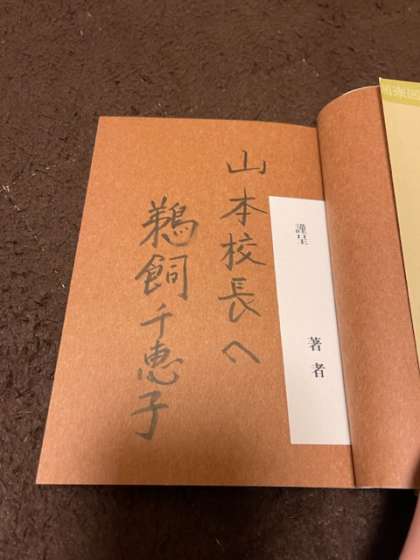 山本校長へ
鵜飼千恵子
謹呈
著者